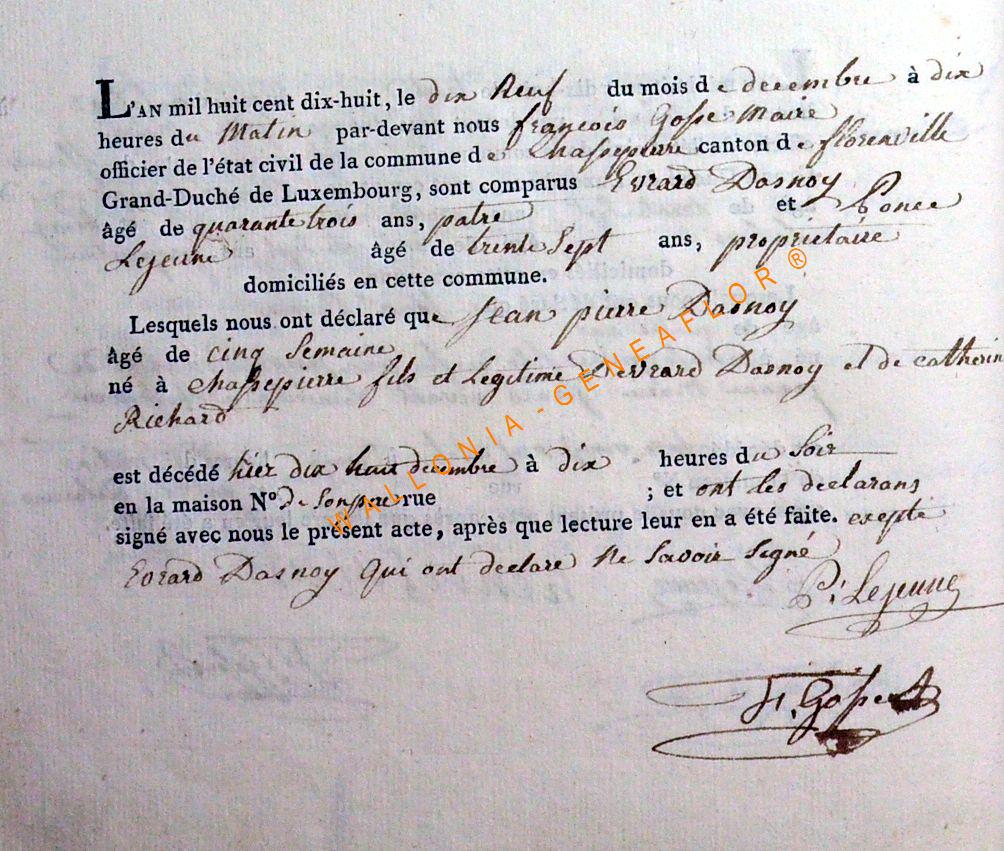 L'AN mil huit cent dix-huit, le dix Neuf du mois de decembre à dix
heures du Matin par-devant nous françois Gosse Maire
officier de l'état civil de la commune de Chassepierre canton de florenville
Grand-Duché de Luxembourg, sont comparus Evrard Dasnoy
âgé de quarante trois ans, patre et Ponce
Lejeune âgé de trente Sept ans, proprietaire
domiciliés en cette commune.
Lesquels nous ont déclaré que Jean pierre Dasnoy
âgé de cinq Semaine
né à chassepierre fils et Legitime Devrard Dasnoy et de catherin
Richard
est décédé hier dix huit decembre à dix heures du Soir
en la maison N° de Son pere rue ; et ont les declarans
signé avec nous le présent acte, après que lecture leur en a été faite. exepté
Evrard Dasnoy qui ont declare ne Savoir Signé
P: Lejeune
WALLONIA - GENEAFLOR ®